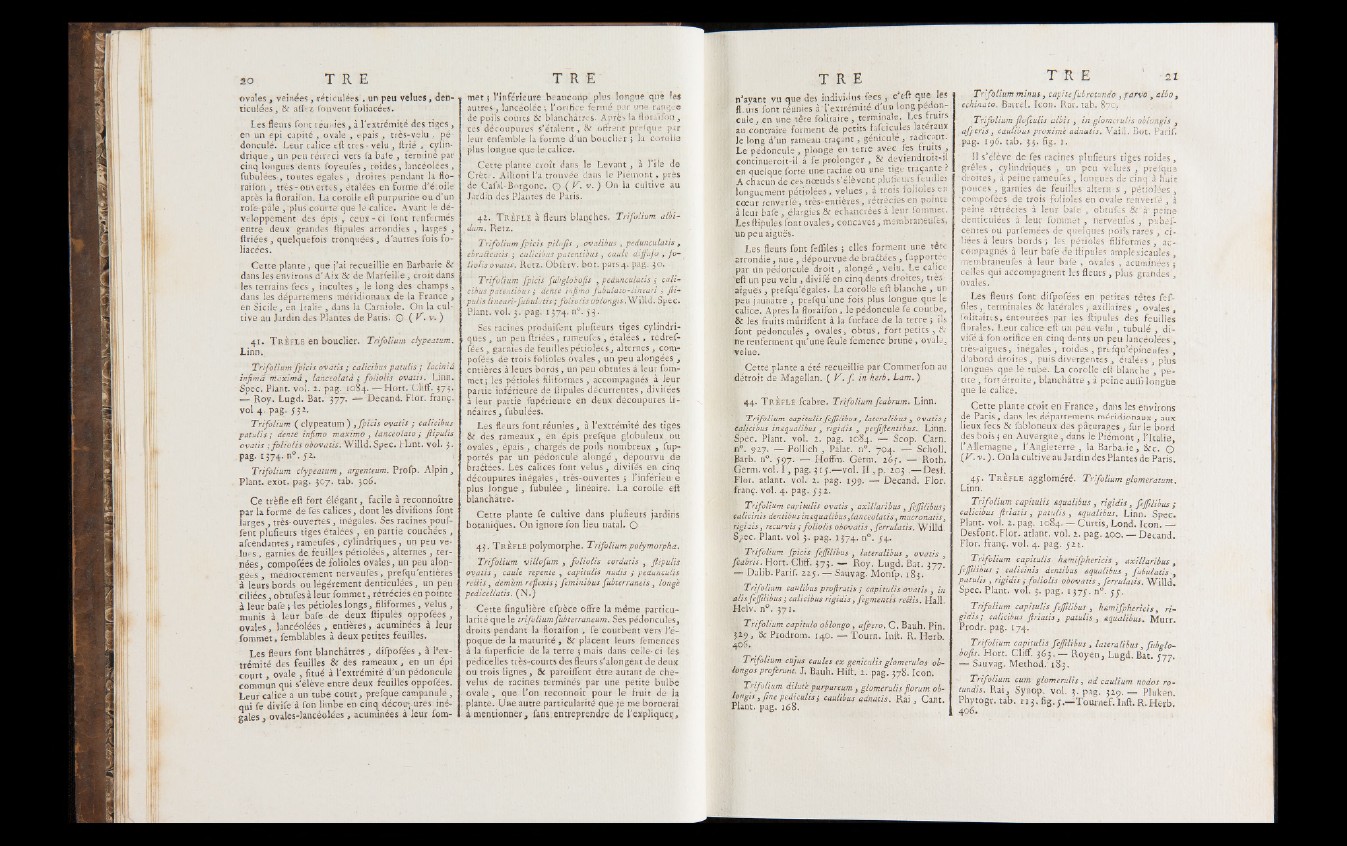 20 TRE TRE
ovales, veinées, réticulées, un peu velues, den-
ticulées, & assez souvent foliacées.
Les fleurs sont réunies, à l'extrémité des tiges,
en un épi capité, ovale, épais, très-velu, pé-
donculé. Leur calice est très-velu, strié, cylin-
drique, un peu rétréci vers sa base, terminé par
cinq longues dents soyeuses, roides, lancéolées,
subulées, toutes égales, droites pendant la flo-
raison, très-ouvertes, étalées en forme d'étoile
après la floraison. La corolle est purpurine ou d'un
rose-pâle, plus courte que le calice. Avant le dé-
veloppement des épis, ceux-ci sont renfermés
entre deux grandes stipules arrondies, larges,
striées, quelquefois tronquées, d'autres fois fo-
liacées.
Cette plante, que j'ai recueillie en Barbarie &
dans les environs d'Aix & de Marseille, croît dans
les terrains secs, incultes, le long des champs,
dans les départemens méridionaux de la France,
en Sicile, en Italie, dans la Carniole. On la cul-
tive au Jardin des Plantes de Paris. ☉ (V. v.)
41. TRÈFLE en bouclier. Trifolium clypeatum.
Linn.
Trifolium spicis ovatis; calicibus patulis; laciniâ
infimâ maximâ, lanceolatâ; foliolis ovatis. Linn.
Spec. Plant. vol. 2. pag. 1084. — Hort. Cliff. 374.
— Roy. Lugd. Bat. 377. — Decand. Flor. franç.
vol 4. pag. 532.
Trifolium (clypeatum), spicis ovatis; calicibus
patulis; dente infimo maximo, lanceolato; stipulis
ovatis; foliolis obovatis. Willd. Spec. Plant. vol. 3.
pag. 1374. n°. 52.
Trifolium clypeatum, argenteum. Prosp. Alpin,
Plant. exot. pag. 307. tab. 306.
Ce trèfle est fort élégant, facile à reconnoître
par la forme de ses calices, dont les divisions sont
larges, très-ouvertes, inégales. Ses racines pous-
sent plusieurs tiges étalées, en partie couchées,
ascendantes, rameuses, cylindriques, un peu ve-
lues, garnies de feuilles pétiolées, alternes, ter-
nées, composées de folioles ovales, un peu alon-
gées, médiocrement nerveuses, presqu'entières
à leurs bords ou légérement denticulées, un peu
ciliées, obtuses à leur sommet, rétrécies en pointe
à leur base; les pétioles longs, filiformes, velus,
munis à leur base de deux stipules opposées,
ovales, lancéolées, entières, acuminées à leur
sommet, semblables à deux petites feuilles.
Les fleurs sont blanchâtres, disposées, à l'ex-
trémité des feuilles & des rameaux, en un épi
court, ovale, situé à l'extrémité d'un pédoncule
commun qui s'élève entre deux feuilles opposées.
Leur calice a un tube court, presque campanulé,
qui se divise à son limbe en cinq découpures iné-
gales, ovales-lancéolées, acuminées à leur som-
met; l'inférieure beaucoup plus longue que les
autres, lancéolée; l'orifice fermé par une rangée
de poils courts & blanchâtres. Après la floraison,
ces découpures s'étalent, & offrent presque par
leur ensemble la forme d'un bouclier; la corolle
plus longue que le calice.
Cette plante croît dans le Levant, à l'île de
Crète. Allioni l'a trouvée dans le Piémont, près
de Casal-Borgone. ☉ (V. v.) On la cultive au
Jardin des Plantes de Paris.
42. TRÈFLE à fleurs blanches. Trifolium albi-
dum. Retz.
Trifolium spicis pilosis, ovalibus, pedunculatis,
ebracteatis; calicibus patentibus, caule diffuso, fo-
liolis ovatis. Retz. Observ. bot. pars 4. pag. 30.
Trifolium spicis subglobosis, pedunculatis; cali-
cibus patentibus; dente infimo subulato-lineari; sti-
pulis lineari-subulatis; foliolis oblongis. Willd. Spec.
Plant. vol. 3. pag. 1374. n°. 53.
Ses racines produisent plusieurs tiges cylindri-
ques, un peu striées, rameuses, étalées, redres-
sées, garnies de feuilles pétiolées, alternes, com-
posées de trois folioles ovales, un peu alongées,
entières à leurs bords, un peu obtuses à leur som-
met; les pétioles filiformes, accompagnés à leur
partie inférieure de stipules décurrentes, divisées
à leur partie supérieure en deux découpures li-
néaires, subulées.
Les fleurs sont réunies, à l'extrémité des tiges
& des rameaux, en épis presque globuleux ou
ovales, épais, chargés de poils nombreux, sup-
portés par un pédoncule alongé, dépourvu de
bractées. Les calices sont velus, divisés en cinq
découpures inégales, très-ouvertes; l'inférieure
plus longue, subulée, linéaire. La corolle est
blanchâtre.
Cette plante se cultive dans plusieurs jardins
botaniques. On ignore son lieu natal. ☉
43. TRÈFLE polymorphe. Trifolium polymorpha.
Trifolium villosum, foliolis cordatis, stipulis
ovatis, caule repente, capitulis nudis; pedunculis
rectis, demùm reflexis; feminibus subterraneis, longè
pedicellatis. (N.)
Cette singulière espèce offre la même particu-
larité que le trifolium subterraneum. Ses pédoncules,
droits pendant la floraison, se courbent vers l'é-
poque de la maturité, & placent leurs semences
à la superficie de la terre; mais dans celle-ci les
pédicelles très-courts des fleurs s'alongent de deux
ou trois lignes, & paroissent être autant de che-
velus de racines terminés par une petite bulbe
ovale, que l'on reconnoît pour le fruit de la
plante. Une autre particularité que je me bornerai
à mentionner, sans entreprendre de l'expliquer,
TRE TRE 21
n'ayant vu que des individus secs, c'est que les
fleurs sont réunies à l'extrémité d'un long pédon-
cule, en une tête solitaire, terminale. Les fruits
au contraire forment de petits fascicules latéraux
le long d'un rameau traçant, géniculé, radicant.
Le pédoncule, plongé en terre avec ses fruits,
continueroit-il à se prolonger, & deviendroit-il
en quelque sorte une racine ou une tige traçante?
A chacun de ces nœuds s'élèvent plusieurs feuilles
longuement pétiolées, velues, à trois folioles en
cœur renversé, très-entières, rétrécies en pointe
à leur base, élargies & échancrées à leur sommet.
Les stipules sont ovales, concaves, membraneuses,
un peu aiguës.
Les fleurs sont sessiles; elles forment une tête
arrondie, nue, dépourvue de bractées, supportée
par un pédoncule droit, alongé, velu. Le calice
est un peu velu, divisé en cinq dents droites, très-
aiguës, presqu'égales. La corolle est blanche, un
peu jaunâtre, presqu'une fois plus longue que le
calice. Après la floraison, le pédoncule se courbe,
& les fruits mûrissent à la surface de la terre; ils
sont pédonculés, ovales, obtus, fort petits, &
ne renferment qu'une seule semence brune, ovale,
velue.
Cette plante a été recueillie par Commerson au
détroit de Magellan. (V. s. in herb. Lam.)
44. TRÈFLE scabre. Trifolium scabrum. Linn.
Trifolium capitulis sessilibus, lateralibus, ovatis;
calicibus inequalibus, rigidis, persistentibus. Linn.
Spec. Plant. vol. 2. pag. 1084. — Scop. Carn.
n°. 927. — Pollich, Palat. n°. 704. — Scholl.
Barb. n°. 597. — Hoffm. Germ. 265. — Roth.
Germ. vol. I, pag. 315.—vol. II, p. 203. — Desf.
Flor. atlant. vol. 2. pag. 199. — Decand. Flor.
franç. vol. 4. pag. 532.
Trifolium capitulis ovatis, axillaribus, sessilibus;
calicinis dentibus inæqualibus, lanceolatis, mucronatis,
rigidis, recurvis; foliolis obovatis, serrulatis. Willd
Spec. Plant. vol 3. pag. 1374. n°. 54.
Trifolium spicis sessilibus, lateralibus, ovatis,
scabris. Hort. Cliff. 373. — Roy. Lugd. Bat. 377.
— Dalib. Paris. 225. — Sauvag. Monsp. 183.
Trifolium caulibus prostratis; capitulis ovatis, in
alis sessilibus; calicibus rigidis, segmentis rectis. Hall.
Helv. n°. 371.
Trifolium capitulo oblongo, aspero. C. Bauh. Pin.
329, & Prodrom. 140. — Tourn. Inst. R. Herb.
406.
Trifolium cujus caules ex geniculis glomerulos ob-
longos proferunt. J. Bauh. Hist. 2. pag. 378. Icon.
Trifolium dilutè purpureum, glomerulis florum ob-
longis, sine pediculis; caulibus adnatis. Rai, Cant.
Plant. pag. 168.
Trifolium minus, capite subrotundo, parvo, albo,
echinato. Barrel. Icon. Rar. tab. 870.
Trifolium flosculis albis, in glomerulis oblongis,
asperis, caulibus proximè adnatis. Vaill. Bot. Paris.
pag. 196. tab. 33. fig. 1.
Il s'élève de ses racines plusieurs tiges roides,
grêles, cylindriques, un peu velues, presque
droites, à peine rameuses, longues de cinq à huit
pouces, garnies de feuilles alternes, pétiolées,
composées de trois folioles en ovale renversé, à
peine rétrécies à leur base, obtuses & à peine
denticulées à leur sommet, nerveuses, pubes-
centes ou parsemées de quelques poils rares, ci-
liées à leurs bords; les pétioles filiformes, ac-
compagnés à leur base de stipules amplexicaules,
membraneuses à leur base, ovales, acuminées;
celles qui accompagnent les fleurs, plus grandes,
ovales.
Les fleurs sont disposées en petites têtes ses-
siles, terminales & latérales, axillaires, ovales,
solitaires, entourées par les stipules des feuilles
florales. Leur calice est un peu velu, tubulé, di-
visé à son orifice en cinq dents un peu lancéolées,
très-aiguës, inégales, roides, presqu'épineuses,
d'abord droites, puis divergentes, étalées, plus
longues que le tube. La corolle est blanche, pe-
tite, fort étroite, blanchâtre, à peine aussi longue
que le calice.
Cette plante croît en France, dans les environs
de Paris, dans les départemens méridionaux, aux
lieux secs & sabloneux des pâturages, sur le bord
des bois; en Auvergne, dans le Piémont, l'Italie,
l'Allemagne, l'Angleterre, la Barbarie, &c. ☉
(V. v.). On la cultive au Jardin des Plantes de Paris.
45. TRÈFLE aggloméré. Trifolium glomeratum.
Linn.
Trifolium capitulis æqualibus, rigidis, sessilibus;
calicibus striatis, patulis, æqualibus. Linn. Spec.
Plant. vol. 2. pag. 1084. — Curtis, Lond. Icon. —
Desfont. Flor. atlant. vol. 2. pag. 200. — Decand.
Flor. franç. vol. 4. pag. 522.
Trifolium capitulis hæmisphericis, axillaribus,
sessilibus; calicinis dentibus æqualibus, subulatis,
patulis, rigidis; foliolis obovatis, serrulatis. Willd.
Spec. Plant. vol. 3. pag. 1375. n°. 55.
Trifolium capitulis sessilibus, hemisphericis, ri-
gidis; calicibus striatis, patulis, æqualibus. Murr.
Prodr. pag. 174.
Trifolium capitulis sessilibus, lateralibus, subglo-
bosis. Hort. Cliff. 363. — Royen, Lugd. Bat. 577.
— Sauvag. Method. 183.
Trifolium cum glomerulis, ad caulium nodos ro-
tundis. Rai, Synop. vol. 3. pag. 329. — Pluken.
Phytogr. tab. 113. fig. 5.—Tournef. Inst. R. Herb.
406.